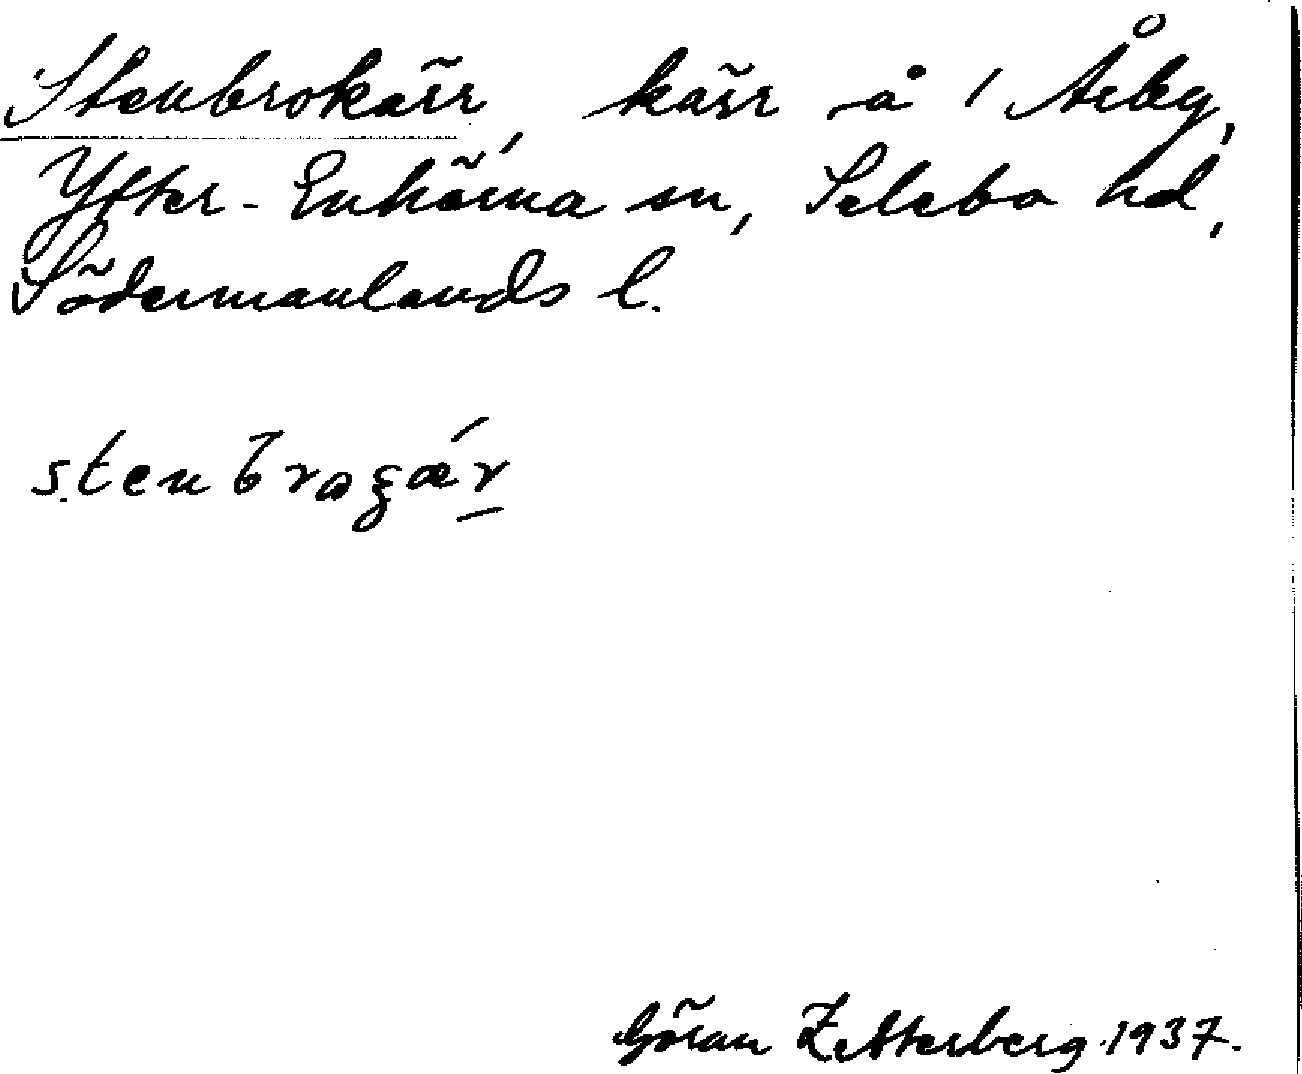 Stenbrokärr, kärr å / Årby,
Ytter-Enhörna sn, Selebo hd,
Södermanlands l.
stenbrogær
Göran Zetterberg 1937.